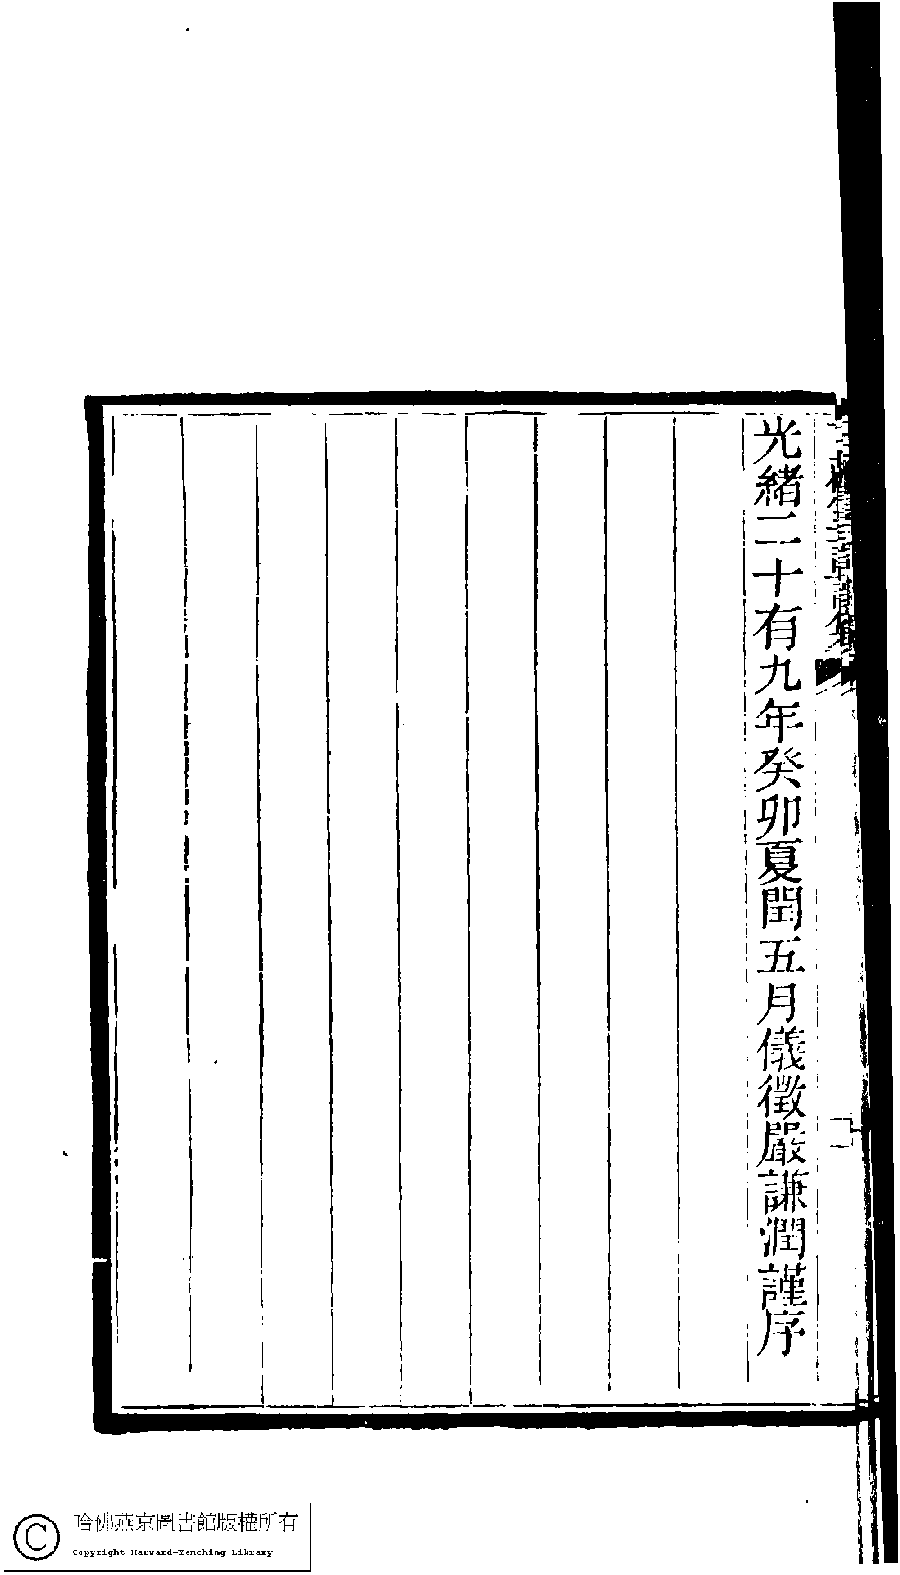 光緒二十有九年癸卯夏閏五月儀徵嚴謙潤謹序
哈佛燕京圖書館版權所有
Copyright Harvard-Yenching Library